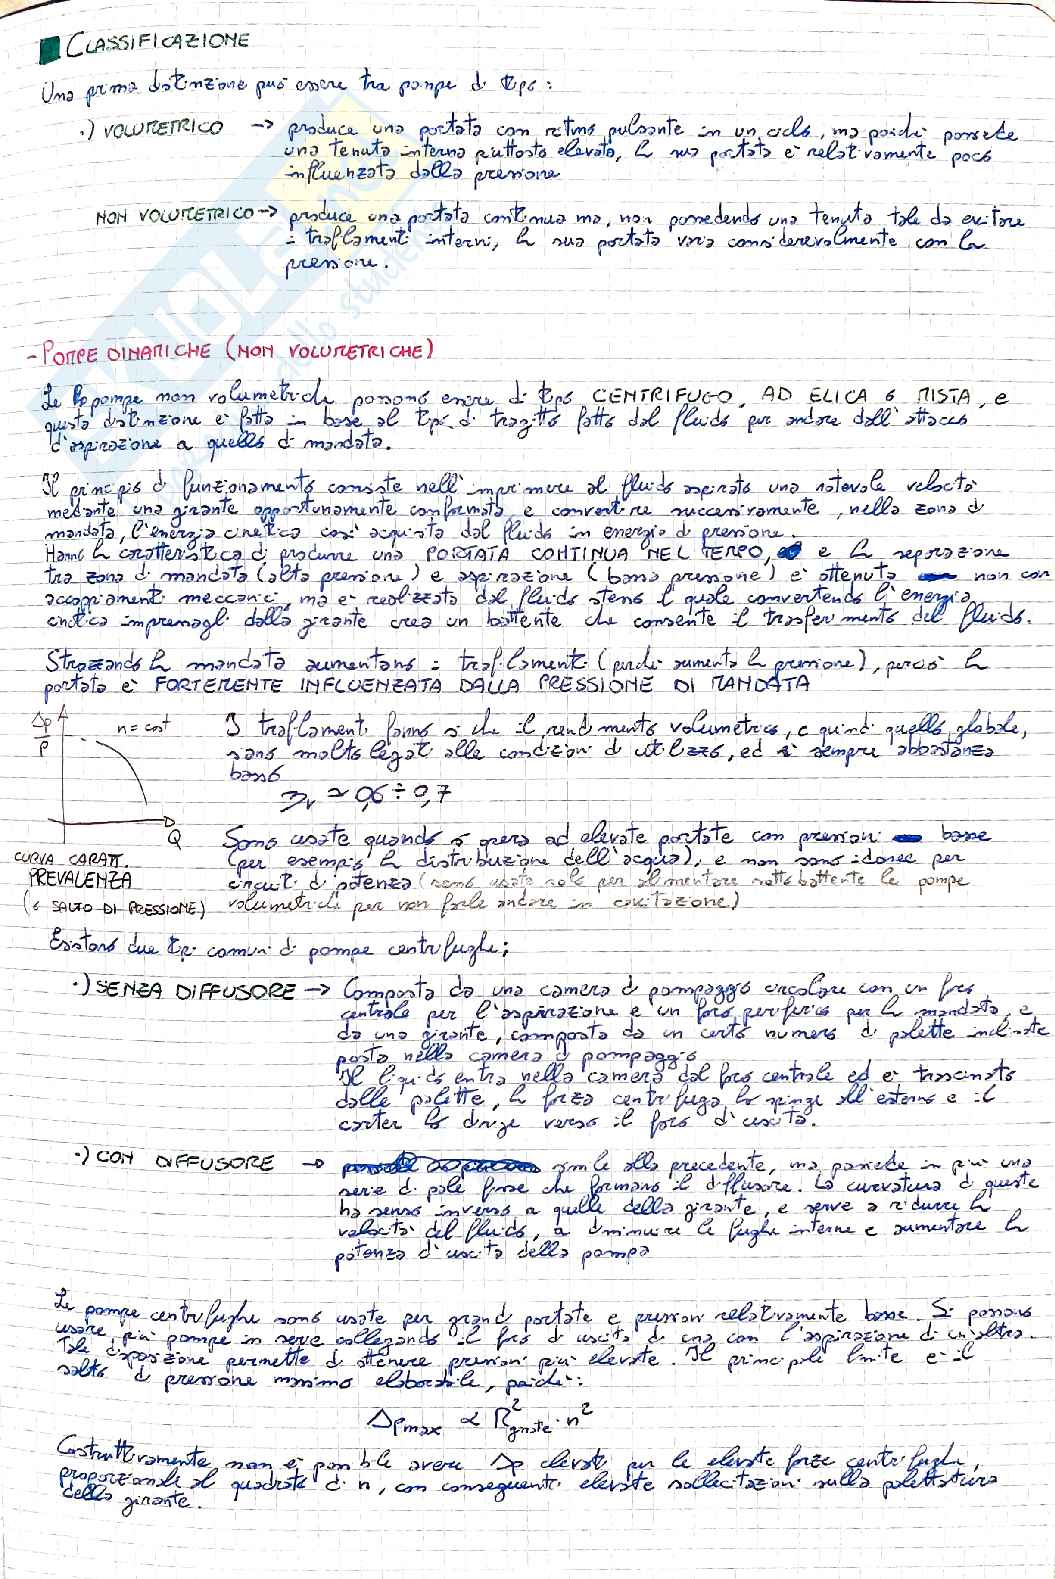 CLASSIFICAZIONE
Una prima distinzione può essere tra pompe di tipo:
·) VOLUMETRICO → produce una portata con ritmo pulsante in un ciclo, ma poiché possiede
una tenuta interna piuttosto elevata, la sua portata è relativamente poco
influenzata dalla pressione
NON VOLUMETRICO → produce una portata continua ma, non possedendo una tenuta tale da evitare
i trafilamenti interni, la sua portata varia considerevolmente con la
pressione.
- POMPE DINAMICHE (NON VOLUMETRICHE)
Le pompe non volumetriche possono essere di tipo CENTRIFUGO, AD ELICA O MISTA, e
questa distinzione è fatta in base al tipo di tragitto fatto dal fluido per andare dall'attacco
d'aspirazione a quello di mandata.
Il principio di funzionamento consiste nell'imprimere al fluido aspirato una notevole velocità
mediante una girante opportunamente conformata, e convertire successivamente, nella zona di
mandata, l'energia cinetica così acquisita dal fluido in energia di pressione.
Hanno la caratteristica di produrre una PORTATA CONTINUA NEL TEMPO, e la separazione
tra zona di mandata (alta pressione) e aspirazione (bassa pressione) è ottenuta non con
accoppiamenti meccanici, ma è realizzata dal fluido stesso il quale convertendo l'energia
cinetica impressagli dalla girante crea un battente che consente il trasferimento del fluido.
Strozzando la mandata aumentano i trafilamenti (perché aumenta la pressione), perciò la
portata è FORTEMENTE INFLUENZATA DALLA PRESSIONE DI MANDATA
Δp/ρ n = cost
Q
CURVA CARATT.
PREVALENZA
(o SALTO DI PRESSIONE)
I trafilamenti fanno sì che il rendimento volumetrico, e quindi quello globale,
siano molto legati alle condizioni di utilizzo, ed è sempre abbastanza
basso
ηv ≃ 0,6 ÷ 0,7
Sono usate quando si opera ad elevate portate con pressioni basse
(per esempio la distribuzione dell'acqua), e non sono idonee per
circuiti di potenza (sono usate solo per alimentare sotto battente le pompe
volumetriche per non farle andare in cavitazione)
Esistono due tipi comuni di pompe centrifughe:
·) SENZA DIFFUSORE → Composta da una camera di pompaggio circolare con un foro
centrale per l'aspirazione e un foro periferico per la mandata, e
da una girante, composta da un certo numero di palette inclinate
posta nella camera di pompaggio
Il liquido entra nella camera dal foro centrale ed è trascinato
dalle palette, la forza centrifuga lo spinge all'esterno e il
carter lo dirige verso il foro d'uscita.
·) CON DIFFUSORE → simile alla precedente, ma possiede in più una
serie di pale fisse che formano il diffusore. La curvatura di queste
ha senso inverso a quelle della girante, e serve a ridurre la
velocità del fluido, a diminuire le fughe interne e aumentare la
potenza d'uscita della pompa
Le pompe centrifughe sono usate per grandi portate e pressioni relativamente basse. Si possono
usare più pompe in serie collegando il foro di uscita di una con l'aspirazione di un'altra.
Tale disposizione permette di ottenere pressioni più elevate. Il principale limite è il
salto di pressione massimo elaborabile, poiché:
Δpmax ∝ R²girante · n²
Costruttivamente non è possibile avere Δp elevati per le elevate forze centrifughe,
proporzionali al quadrato di n, con conseguenti elevate sollecitazioni sulla palettatura
della girante.